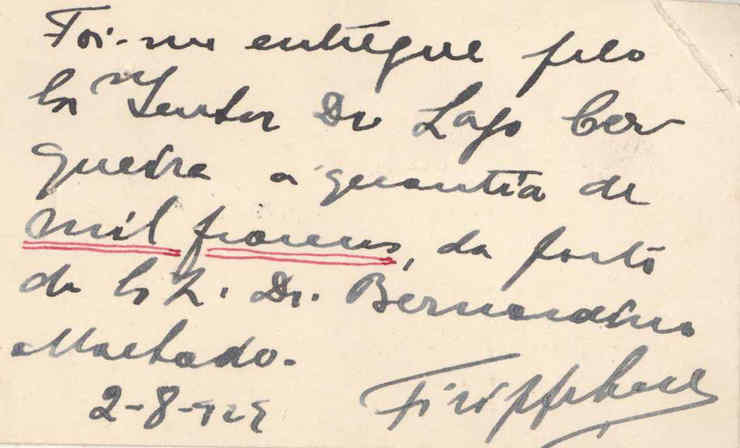 Foi-me entregue pelo
Senhor Dr Lago Cer
queira a quantia de
mil francos, da parte
do Dr. Bernardino
Machado.
2-8-929